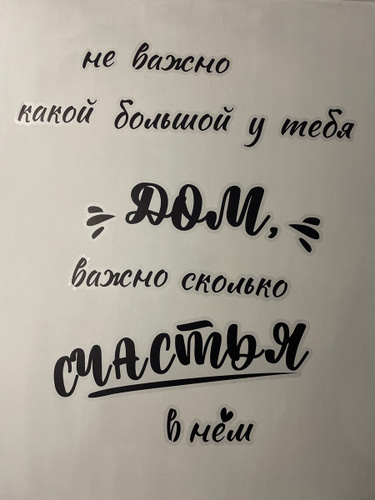 не важно
какой большой у тебя
ДОМ,
важно сколько
СЧАСТЬЯ
в нём